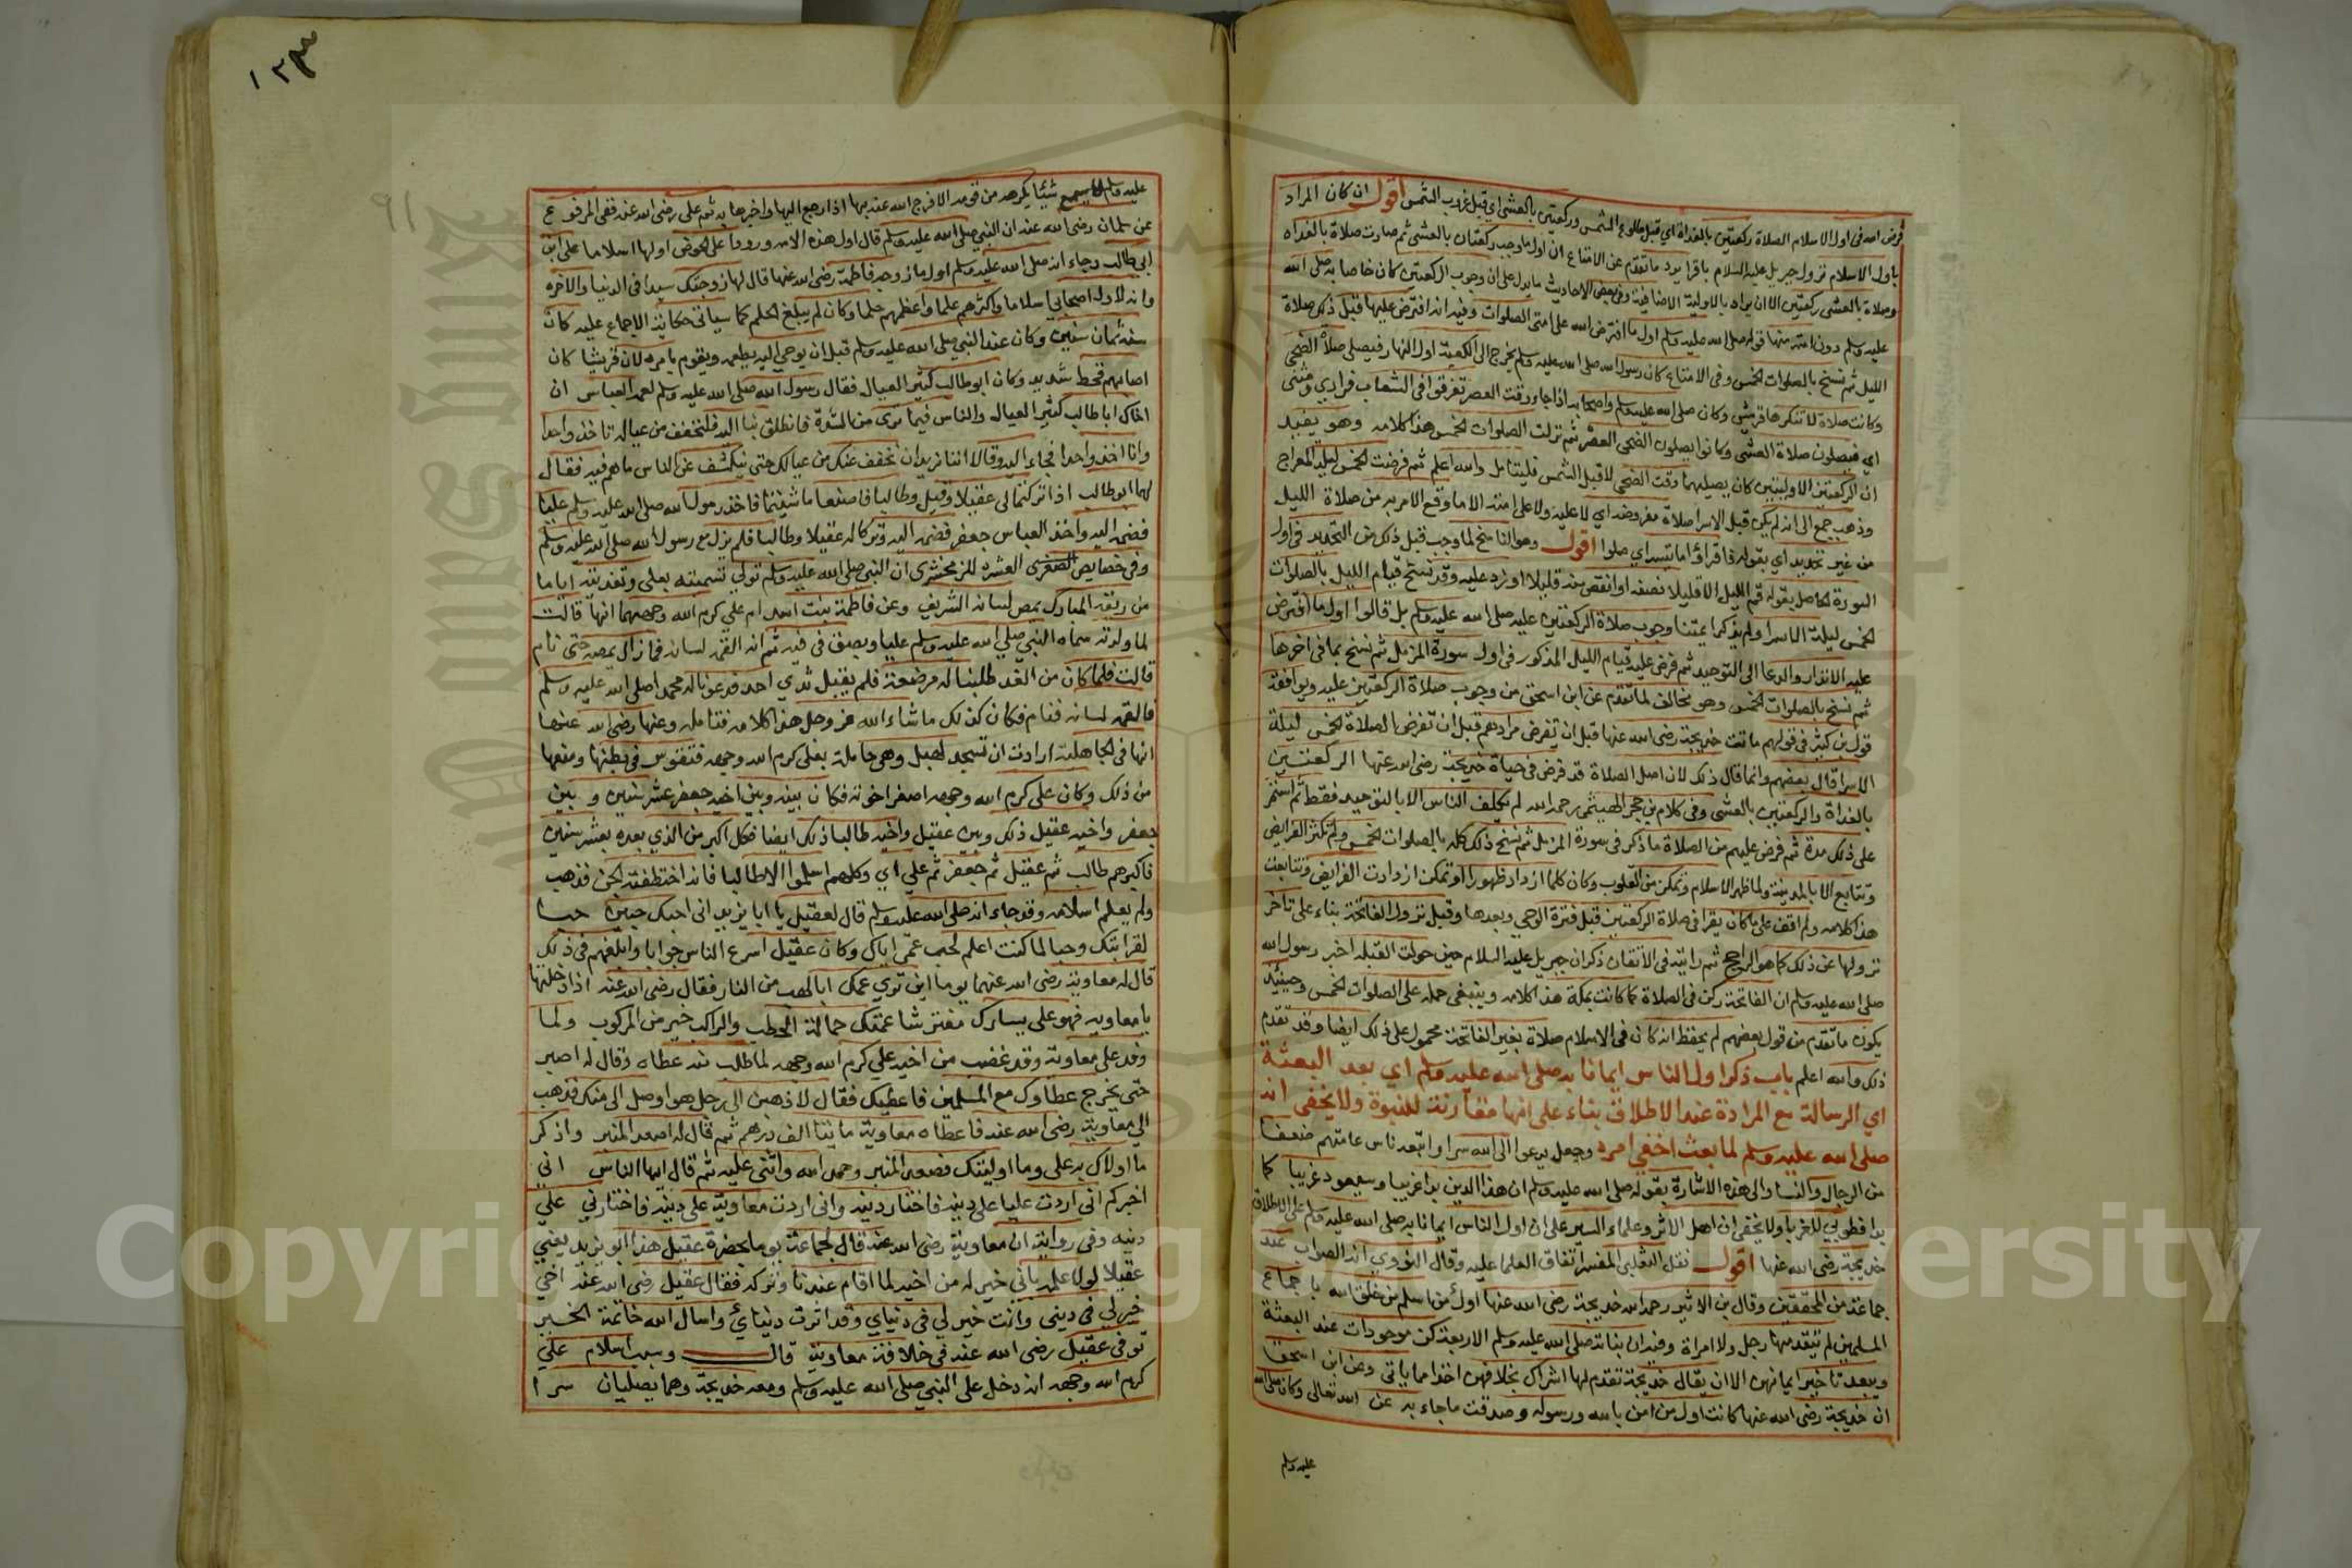 فرض الله فى اول الاسلام الصلاة ركعتين بالغداة اي قبل طلوع الشمس وركعتين بالعشي اي قبل غروب الشمس اقول ان كان المراد
باول الاسلام نزول جبريل عليه السلام باقرا يرد ما تقدم عن الامتاع ان اول ما وجب ركعتان بالعشي ثم صارت صلاة بالغداه
وصلاة بالعشي ركعتين الا ان يراد بالاولية الاضافية وفى بعض الاحاديث ما يدل على ان وجوب الركعتين كان خاصا به صلى الله
عليه وسلم دون امته منها قوله صلى الله عليه وسلم اول ما افترض الله على امتى الصلوات وفيه انه افترض عليها قبل ذلك صلاة
الليل ثم نسخ بالصلوات الخمس وفى الامتاع كان رسول الله صلى الله عليه وسلم يخرج الى الكعبة اول النهار فيصلى صلاة الضحى
وكانت صلاة لا تنكرها قريش وكان صلى الله عليه وسلم واصحابه اذا جاء وقت العصر تفرقوا فى الشعاب فرادي ومثنى
اي فيصلون صلاة العشي وكانوا يصلون الضحى والعصر ثم نزلت الصلوات الخمس هذا كلامه وهو يفيد
ان الركعتين الاوليتين كان يصليهما وقت الضحى لا قبل الشمس فليتامل والله اعلم ثم فرضت الخمس ليلة المعراج
وذهب جمع الى انه لم يكن قبل الاسرا صلاة مفروضة اي لا عليه ولا على امته الا ما وقع الامر به من صلاة الليل
من غير تحديد اي بقوله فاقرأوا ما تيسر اي صلوا اقول وهو الناسخ لما وجب قبل ذلك من التحديد فى اول
السورة الحاصل بقوله قم الليل الا قليلا نصفه او انقص منه قليلا او زد عليه وقد نسخ قيام الليل بالصلوات
الخمس ليلة الاسرا ولم يذكر ائمتنا وجوب صلاة الركعتين عليه صلى الله عليه وسلم بل قالوا اول ما افترض
عليه الانذار والدعا الى التوحيد ثم فرض عليه قيام الليل المذكور فى اول سورة المزمل ثم نسخ بما فى اخرها
ثم نسخ بالصلوات الخمس وهو مخالف لما تقدم عن ابن اسحق من وجوب صلاة الركعتين عليه ويوافقه
قول بن كثير فى قولهم ماتت خديجة رضى الله عنها قبل ان تفرض مرادهم قبل ان تفرض الصلاة الخمس ليلة
الاسرا قال بعضهم وانما قال ذلك لان اصل الصلاة قد فرض فى حياة خديجة رضى الله عنها الركعتين
بالغداة والركعتين بالعشي وفى كلام بن حجر الهيثمى رحمه الله لم يكلف الناس الا بالتوحيد فقط ثم استمر
على ذلك مدة ثم فرض عليهم من الصلاة ما ذكر فى سورة المزمل ثم نسخ ذلك كله بالصلوات الخمس ولم تكثر الفرايض
وتتابع الا بالمدينة ولما ظهر الاسلام وتمكن من القلوب وكان كلما ازداد ظهورا وتمكن ازدادت الفرايض وتتابعت
هذا كلامه ولم اقف على ما كان يقرا فى صلاة الركعتين قبل فترة الوحي وبعدها وقبل نزول الفاتحة بناء على تاخر
نزولها عن ذلك كما هو الراجح ثم رايته فى الاتقان ذكر ان جبريل عليه السلام حين حولت القبله اخبر رسول الله
صلى الله عليه وسلم ان الفاتحة ركن فى الصلاة كما كانت بمكة هذا كلامه وينبغى حمله على الصلوات الخمس وحينئذ
يكون ما تقدم من قول بعضهم لم يحفظ انه كان فى الاسلام صلاة بغير الفاتحة محمول على ذلك ايضا وقد تقدم
ذلك والله اعلم باب ذكر اول الناس ايمانا به صلى الله عليه وسلم اي بعد البعثة
اي الرسالة مع المرادة عند الاطلاق بناء على انها مقارنة للنبوة ولا يخفى انه
صلى الله عليه وسلم لما بعث اخفى امره وجعل يدعوا الى الله سرا واتبعه ناس عامتهم ضعفا
من الرجال والنسا والى هذه الاشارة بقوله صلى الله عليه وسلم ان هذا الدين بدا غريبا وسيعود غريبا كما
بدا فطوبي للغربا ولا يخفى ان اهل الاثر وعلماء السير على ان اول الناس ايمانا به صلى الله عليه وسلم على الاطلاق
خديجة رضى الله عنها اقول نقل الثعلبى المفسر اتفاق العلما عليه وقال النووي انه الصواب عند
جماعة من المحققين وقال بن الاثير رحمه الله خديجة رضى الله عنها اول من اسلم من خلق الله باجماع
المسلمين لم يتقدمها رجل ولا امراة وفيه ان بناته صلى الله عليه وسلم الاربعة كن موجودات عند البعثة
ويبعد تاخير ايمانهن الا ان يقال خديجة تقدم لها اشراك بخلافهن اخذا مما ياتى وعن ابن اسحق
ان خديجة رضى الله عنها كانت اول من امن بالله ورسوله وصدقت ما جاء به عن الله تعالى وكان صلى الله
عليه وسلم
١٢٣
٩١
عليه وسلم لا يسمع شيئا يكرهه من قومه الا فرج الله عنه بها اذا رجع اليها واخبرها به ثم على رضى الله عنه ففى المرفوع
عن سلمان رضى الله عنه ان النبي صلى الله عليه وسلم قال اول هذه الامه ورودا على الحوض اولها اسلاما على ابن
ابى طالب وجاء انه صلى الله عليه وسلم اول ما زوجه فاطمة رضى الله عنها قال لها زوجتك سيدا فى الدنيا والاخره
وانه لاول اصحابي اسلاما واكثرهم علما واعظمهم حلما وكان لم يبلغ الحلم كما سياتى حكاية الاجماع عليه كان
سنه ثمان سنين وكان عند النبي صلى الله عليه وسلم قبل ان يوحى اليه يطعمه ويقوم بامره لان قريشا كان
اصابهم قحط شديد وكان ابو طالب كثير العيال فقال رسول الله صلى الله عليه وسلم لعمه العباس ان
اخاك ابا طالب كثير العيال والناس فيما ترى من الشدة فانطلق بنا اليه فلنخفف من عياله تاخذ واحدا
وانا اخذ واحدا فجاء اليه وقالا اننا نريد ان نخفف عنك من عيالك حتى ينكشف عن الناس ما هم فيه فقال
لهما ابو طالب اذا تركتما لى عقيلا وقيل وطالبا فاصنعا ما شيتما فاخذ رسول الله صلى الله عليه وسلم عليا
فضمه اليه واخذ العباس جعفر فضمه اليه وتركا له عقيلا وطالبا فلم يزل مع رسول الله صلى الله عليه وسلم
وفى خصايص العشره للزمخشرى ان النبي صلى الله عليه وسلم تولى تسميته بعلى وتغديته اياما
من ريقه المبارك بمص لسانه الشريف وعن فاطمة بنت اسد ام علي كرم الله وجههما انها قالت
لما ولدته سماه النبي صلي الله عليه وسلم عليا وبصق فى فيه ثم انه القمه لسانه فما زال يمصه حتى نام
قالت فلما كان من الغد طلبنا له مرضعة فلم يقبل ثدي احد فدعونا له محمدا صلى الله عليه وسلم
فالقمه لسانه فنام فكان كذلك ما شاء الله عز وجل هذا كلامه فتامله وعنها رضى الله عنها
انها فى الجاهلية ارادت ان تسجد لهبل وهى حاملة بعلى كرم الله وجهه فتقوس فى بطنها ومنعها
من ذلك وكان على كرم الله وجهه اصغر اخوته فكان بينه وبين اخيه جعفر عشر سنين و بين
جعفر واخيه عقيل ذلك وبين عقيل واخيه طالبا ذلك ايضا فكل اكبر من الذي بعده بعشر سنين
فاكبرهم طالب ثم عقيل ثم جعفر ثم علي اي وكلهم اسلموا الا طالبا فانه اختطفته الجن فذهب
ولم يعلم اسلامه وقد جاء انه صلى الله عليه وسلم قال لعقيل يا ابا يزيد انى احبك حبين حبا
لقرابتك وحبا لما كنت اعلم لحب عمى اياك وكان عقيل اسرع الناس جوابا وابلغهم فى ذلك
قال له معاوية رضى الله عنهما يوما اين ترى عمك ابا لهب من النار فقال رضى الله عنه اذا دخلتها
يا معاويه فهو على يسارك مفترشا عمتك حمالة الحطب والراكب خير من المركوب ولما
وفد على معاوية وقد غضب من اخيه علي كرم الله وجهه لما طلب منه عطاه وقال له اصبر
حتى يخرج عطاوك مع المسلمين فاعطيك فقال لاذهبن الى رجل هو اوصل الى منك فذهب
الى معاوية رضى الله عنه فاعطاه معاوية مايتا الف درهم ثم قال له اصعد المنبر واذكر
ما اولاك به على وما اوليتك فصعد المنبر وحمد الله واثنى عليه ثم قال ايها الناس انى
اخبركم انى اردت عليا على دينه فاختار دينه وانى اردت معاوية على دينه فاختارني علي
دينه وفى رواية ان معاوية رضى الله عنه قال لجماعة يوما بحضرة عقيل هذا ابو يزيد يعني
عقيلا لولا علمه باني خير له من اخيه لما اقام عندنا وتركه فقال عقيل رضى الله عنه اخي
خير لي فى ديني وانت خير لي فى دنياي وقد اثرت دنياي واسال الله خاتمة الخير
توفى عقيل رضى الله عنه فى خلافة معاوية قال وسبب اسلام علي
كرم الله وجهه انه دخل على النبي صلى الله عليه وسلم ومعه خديجة وهما يصليان سرا
Copyright © King Saud University